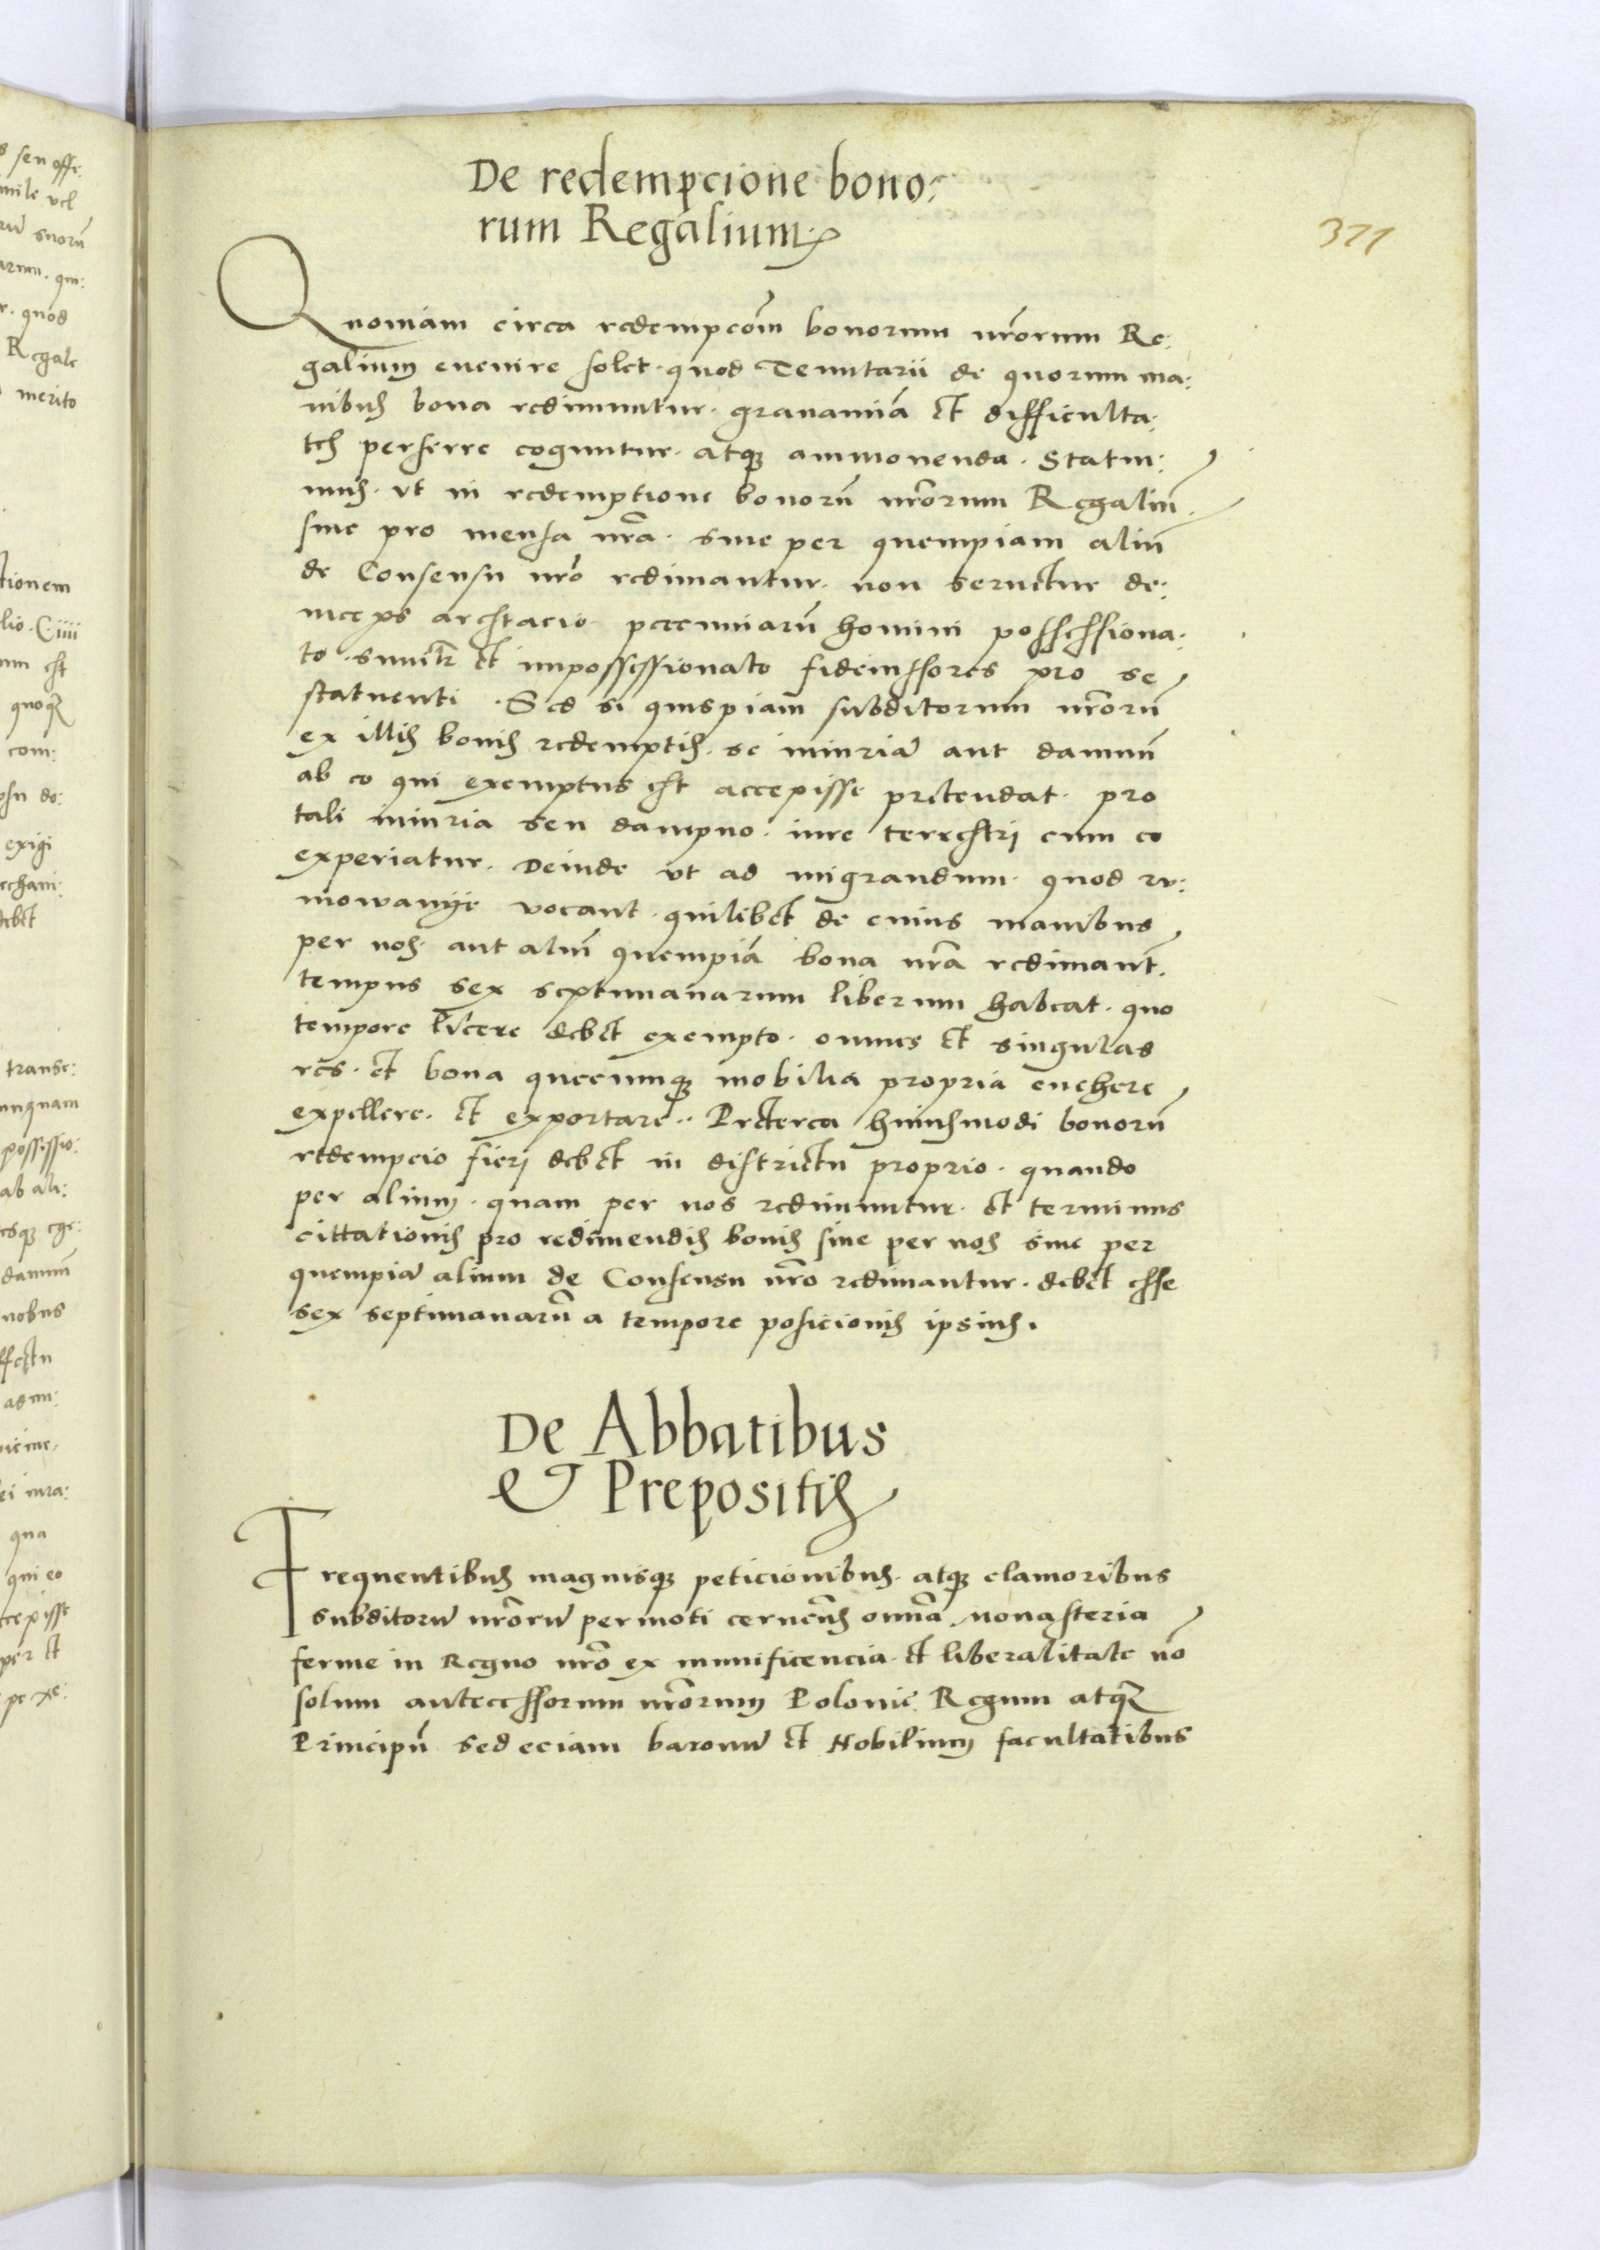 De redempcione bono:
rum Regalium
371
Quoniam circa redempcōm bonorum nr̄orum Re:
galium euenire solet. quod Tenutarii de quorum ma:
nibus bona redimuntur. grauamiā et difficulta:
tes perferre coguntur. atqꝫ ammouenda. Statui:
mus. vt in redemptione bonorū nr̄orum Regaliū
siue pro mensa nr̄a. siue per quempiam aliū
de Consensu nr̄o redimantur. non seruetur de:
inceps arestacio pecuniarū homini possessiona:
to. et impossessionato fideiussores pro se
statuenti. Sed si quispiam subditorum nr̄orū
ex illis bonis redemptis. se iniuriā aut damnū
ab eo qui exemptus est accepisse pretendat. pro
tali iniuria seu dampno. iure terrestri cum eo
experiatur. Deinde vt ad migrandum. quod rv:
mowanije vocant. quilibet de cuius manibus
per nos. aut aliū quempiā bona nr̄a redimant̄.
tempus sex septimanarum liberum habeat. quo
tempore licere debet exempto. omnes et singulas
res. et bona quecumqꝫ mobilia propria euehere
expellere. et exportare. Preterea huiusmodi bonorū
redempcio fieri debet in districtu proprio. quando
per alium. quam per nos redimuntur. et terminus
cittationis pro redimendis bonis siue per nos siue per
quempiā alium de Consensu nr̄o redimantur. debet esse
sex septimanarū a tempore posicionis ipsius.
De Abbatibus
& Prepositis
Frequentibus magnisqꝫ peticionibus. atqꝫ clamoribus
subditorū nr̄orū permoti cernentes omnā monasteria
ferme in Regno nr̄o ex munificencia. et liberalitate nō
solum antecessorum nr̄orum Polonie Regum atqꝫ
Principū sed eciam baronū et Nobilium facultatibus